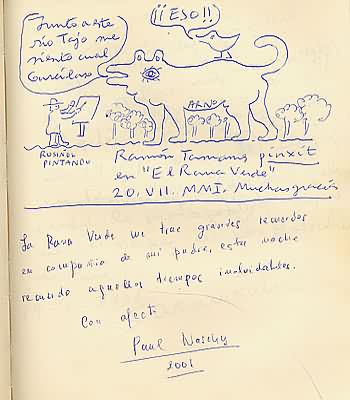 ¡¡ESO!!
Junto a este
río Tajo me
siento cual
Garcilaso
RUSIÑOL
PINTANDO
Ramón Tamames pinxit
en "El Rana Verde"
20. VII. MMI. Muchas gracias
La Rana Verde me trae grandes recuerdos
en compañía de mi padre, esta noche
recuerdo aquellos tiempos inolvidables.
Con afecto
Paul Naschy
2001